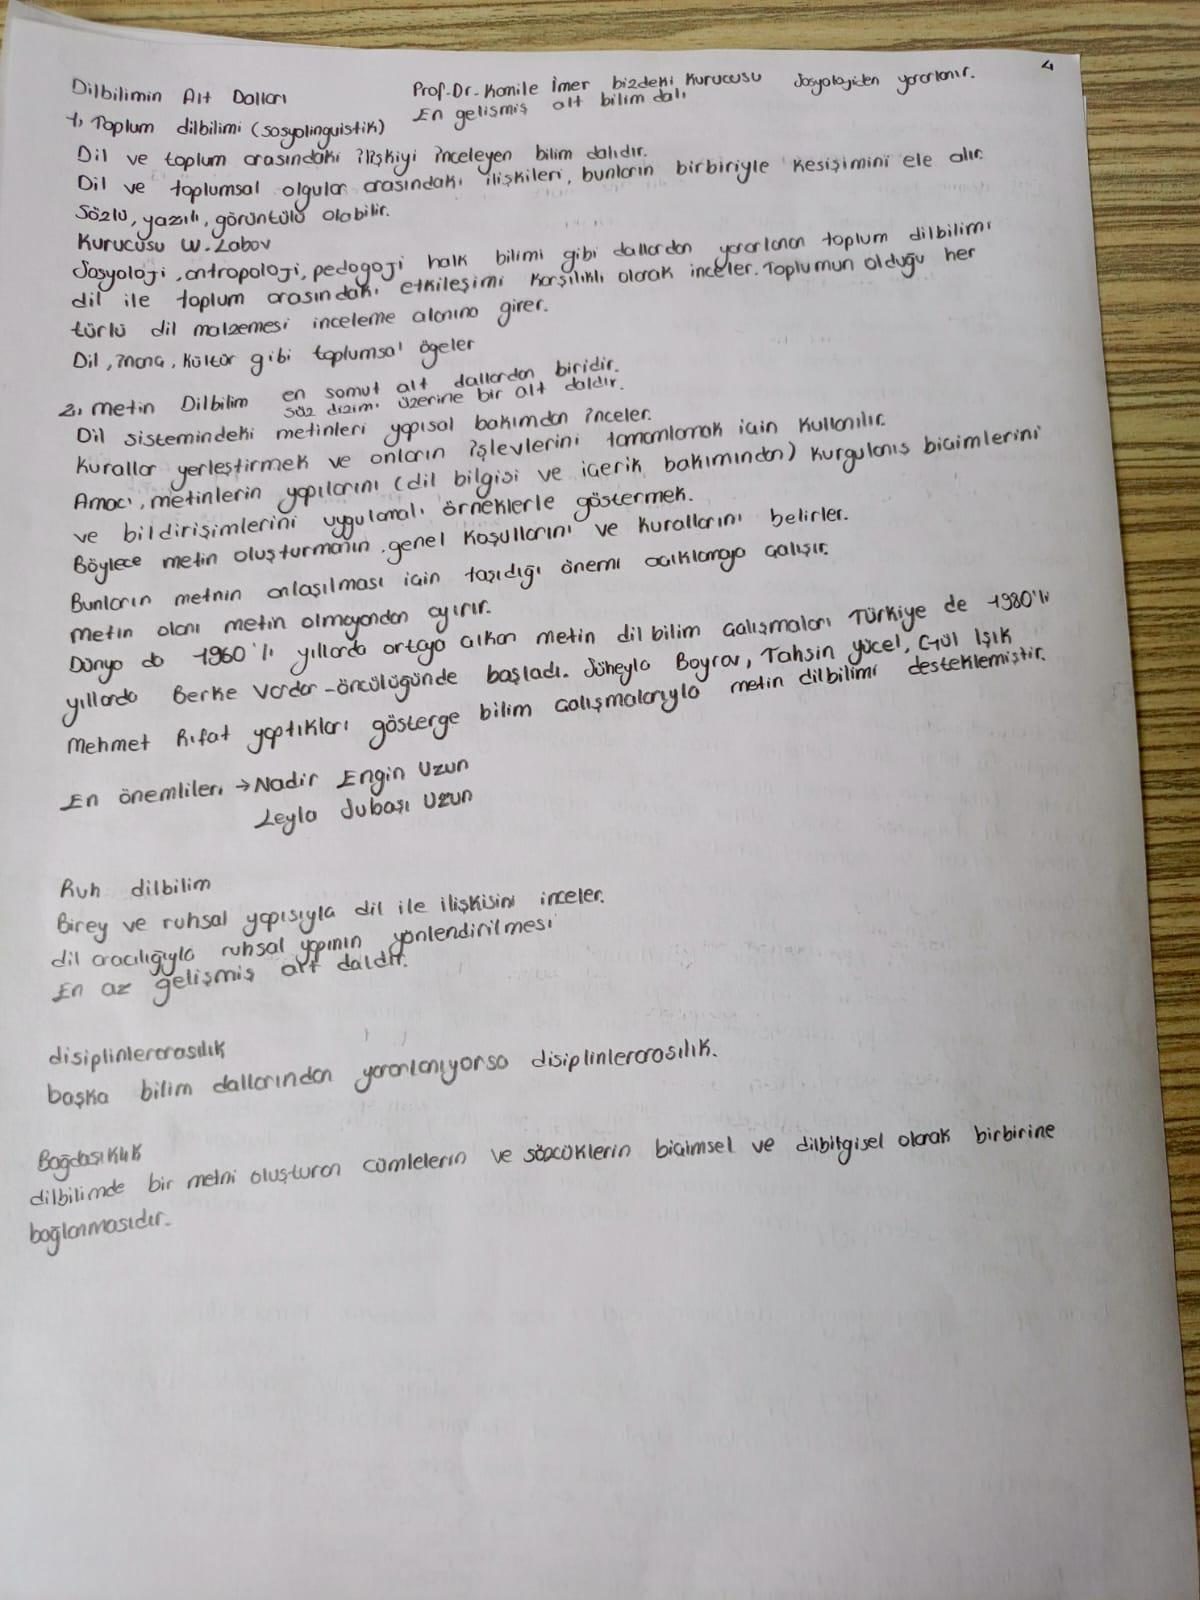 4
Dilbilimin Alt Dalları
Prof. Dr. Kamile İmer bizdeki kurucusu
Sosyolojiden yararlanır.
1, Toplum dilbilimi (sosyolinguistik)
En gelişmiş alt bilim dalı
Dil ve toplum arasındaki ilişkiyi inceleyen bilim dalıdır.
Dil ve toplumsal olgular arasındaki ilişkileri, bunların birbiriyle kesişimini ele alır.
Sözlü, yazılı, görüntülü olabilir.
Kurucusu W. Labov
Sosyoloji, antropoloji, pedogoji halk bilimi gibi dallardan yararlanan toplum dilbilimi
dil ile toplum arasındaki etkileşimi karşılıklı olarak inceler. Toplumun olduğu her
türlü dil malzemesi inceleme alanına girer.
Dil, inanç, kültür gibi toplumsal ögeler
2, Metin Dilbilim
en somut alt dallardan biridir.
söz dizimi üzerine bir alt daldır.
Dil sistemindeki metinleri yapısal bakımdan inceler.
Kurallar yerleştirmek ve onların işlevlerini tamamlamak için kullanılır.
Amacı, metinlerin yapılarını (dil bilgisi ve içerik bakımından) kurgulanış biçimlerini
ve bildirişimlerini uygulamalı örneklerle göstermek.
Böylece metin oluşturmanın genel koşullarını ve kurallarını belirler.
Bunların metnin anlaşılması için taşıdığı önemi açıklamaya çalışır.
Metin olanı metin olmayandan ayırır.
Dünya da 1960'lı yıllarda ortaya çıkan metin dil bilim çalışmaları Türkiye de 1980'li
yıllarda Berke Vardar öncülüğünde başladı. Süheyla Bayrav, Tahsin Yücel, Gül Işık
Mehmet Rıfat yaptıkları gösterge bilim çalışmalarıyla metin dilbilimi desteklemiştir.
En önemlileri → Nadir Engin Uzun
Leyla Subaşı Uzun
Ruh dilbilim
Birey ve ruhsal yapısıyla dil ile ilişkisini inceler.
dil aracılığıyla ruhsal yapının yönlendirilmesi
En az gelişmiş alt daldır.
disiplinlerarasılık
başka bilim dallarından yararlanıyorsa disiplinlerarasılık.
Bağdaşıklık
dilbilimde bir metni oluşturan cümlelerin ve sözcüklerin biçimsel ve dilbilgisel olarak birbirine
bağlanmasıdır.